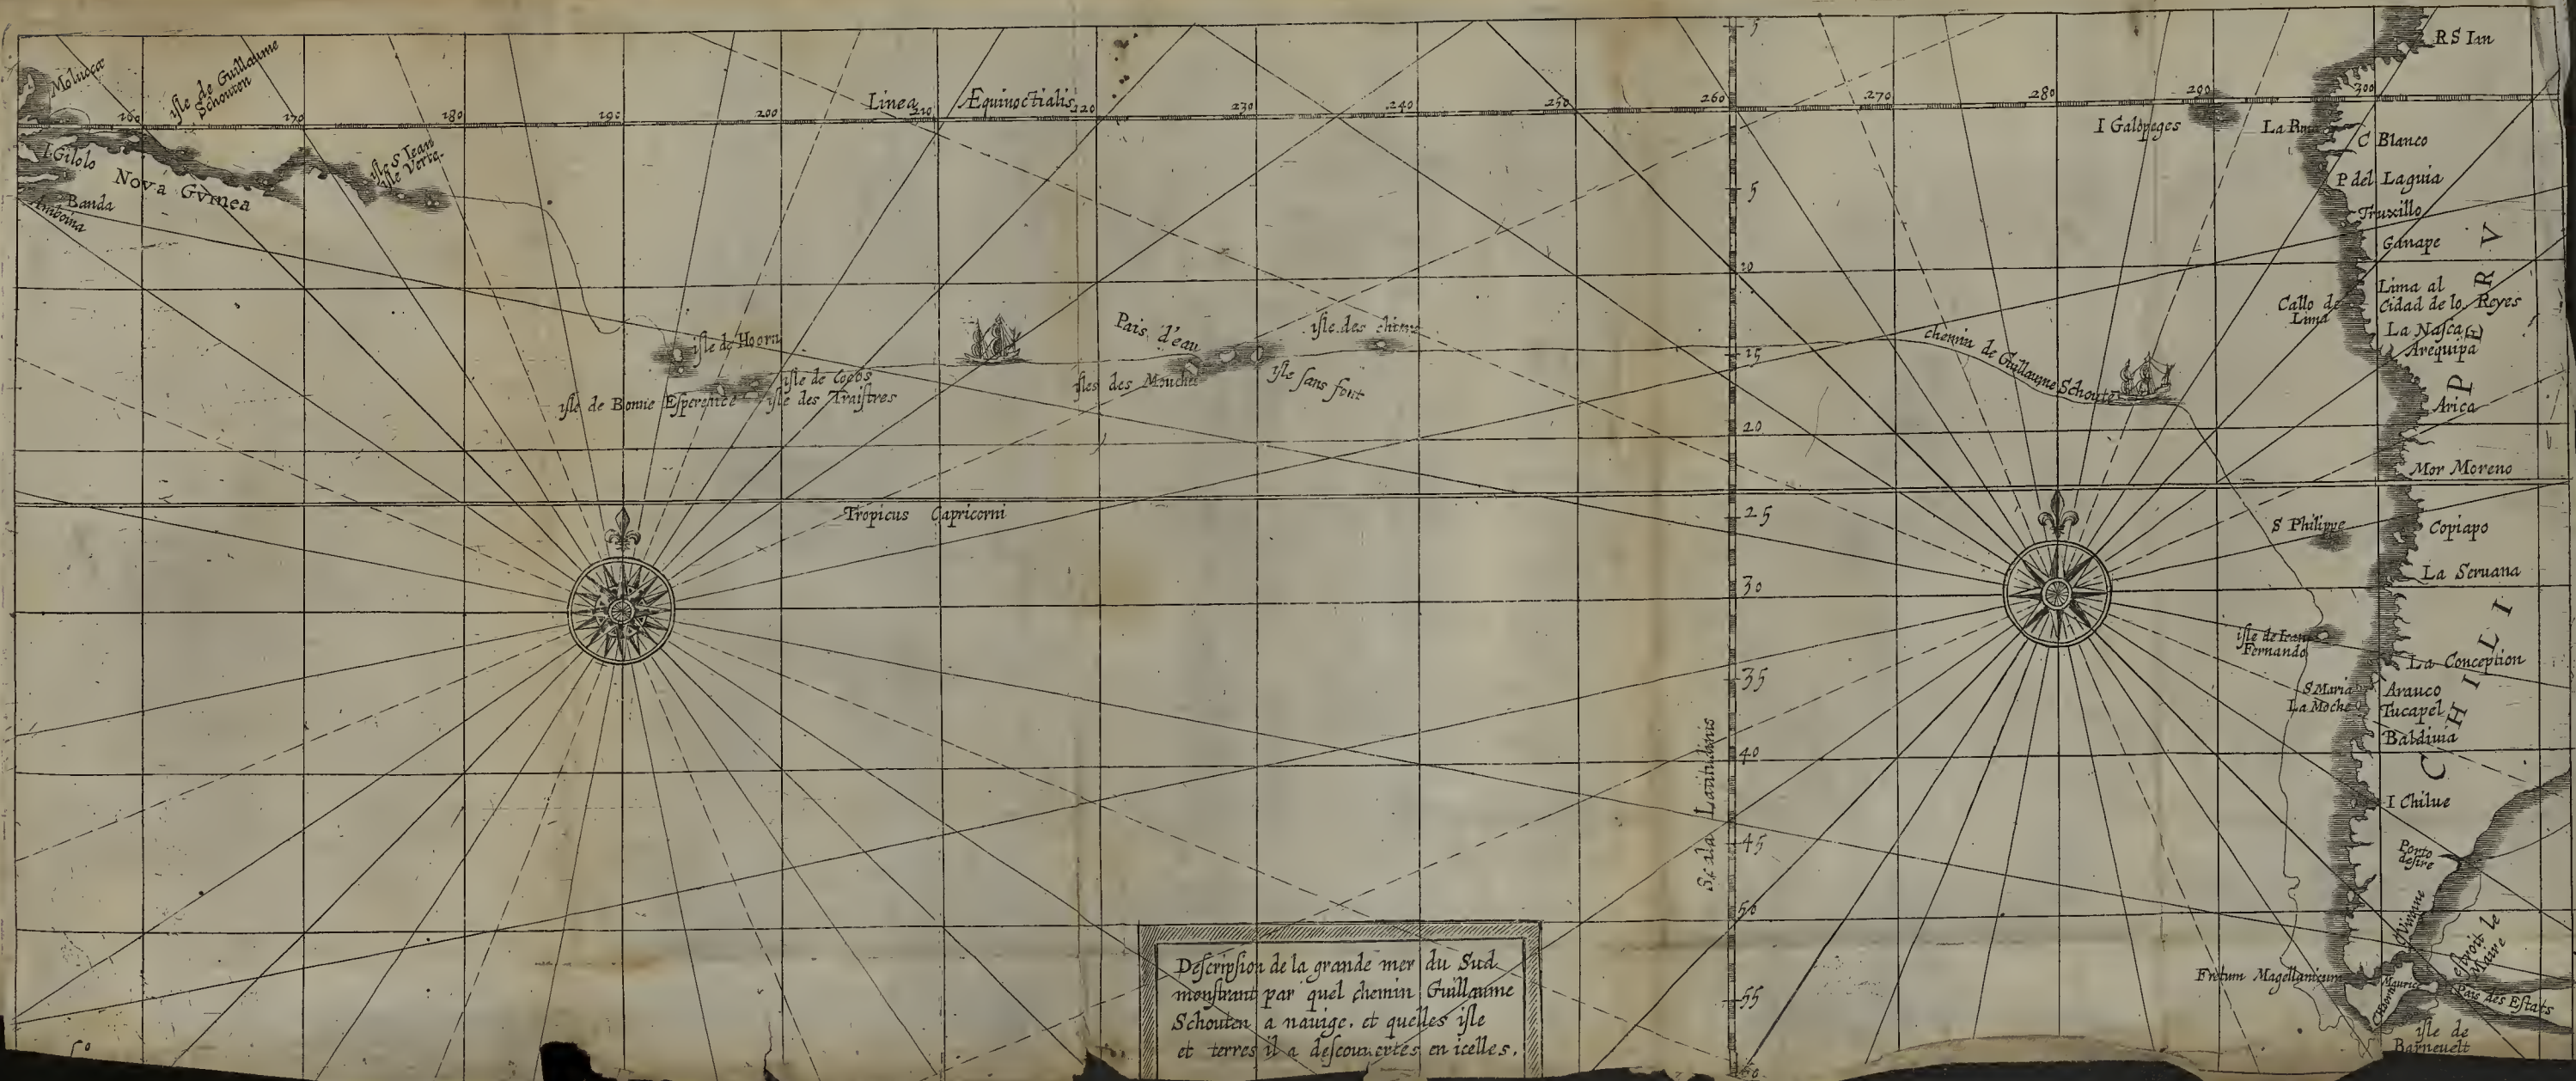 Molucca
isle de Guillaume
Schouten
160
170
180
190
200
Linea
210
Æquinoctialis
220
230
240
250
260
270
280
290
300
I Gilolo
Nova Gvinea
Banda
Amboina
isle S Iean
isle Verte
isle de Hoorn
isle de Cocos
isle de Bonne Esperence
isle des Traistres
Pais d'eau
isles des Mouches
isle des chiens
isle sans font
chemin de Guillaume Schoute
Tropicus Capricorni
5
5
10
15
20
25
30
35
40
45
50
55
60
Scala Latitudinis
R S Ian
I Galopeges
C Blanco
P del Laguia
Truxillo
Ganape
Lima al
Cidad de lo Reyes
Callo de
Lima
La Nasca
Arequipa
PERV
Arica
Mor Moreno
S Philippe
Copiapo
La Seruana
isle de Iean
Fernando
La Conception
S Maria
La Moche
Arauco
Tucapel
Baldiuia
CHILI
I Chilue
Porto
desire
estroit le
Maire
Fretum Magellanicum
Maurice
Pais des Estats
isle de
Barneuelt
Descripsion de la grande mer du Sud
monstrant par quel chemin Guillaume
Schouten a nauige. et quelles isle
et terres il a descouuertes en icelles.